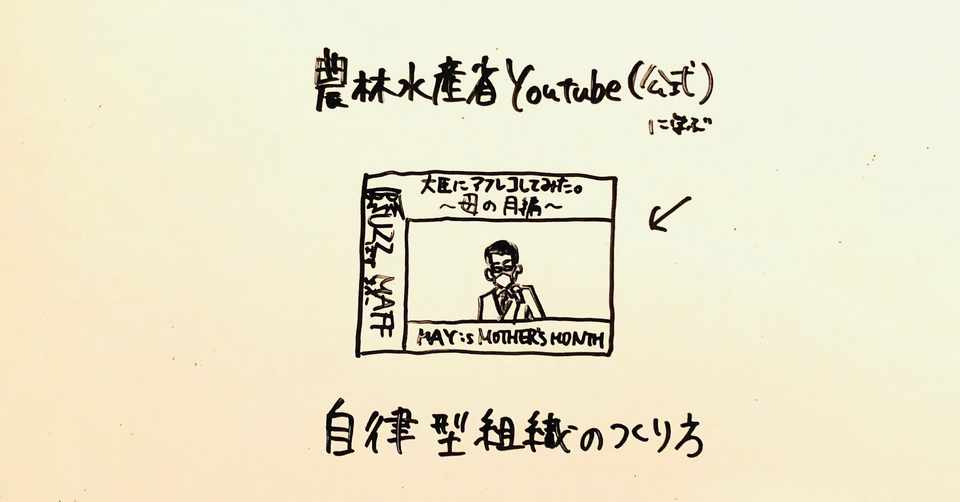 農林水産省Youtube(公式)
に学ぶ
大臣にアフレコしてみた。
〜母の月編〜
BUZZ MAFF
MAY is MOTHER'S MONTH
自律型組織のつくり方